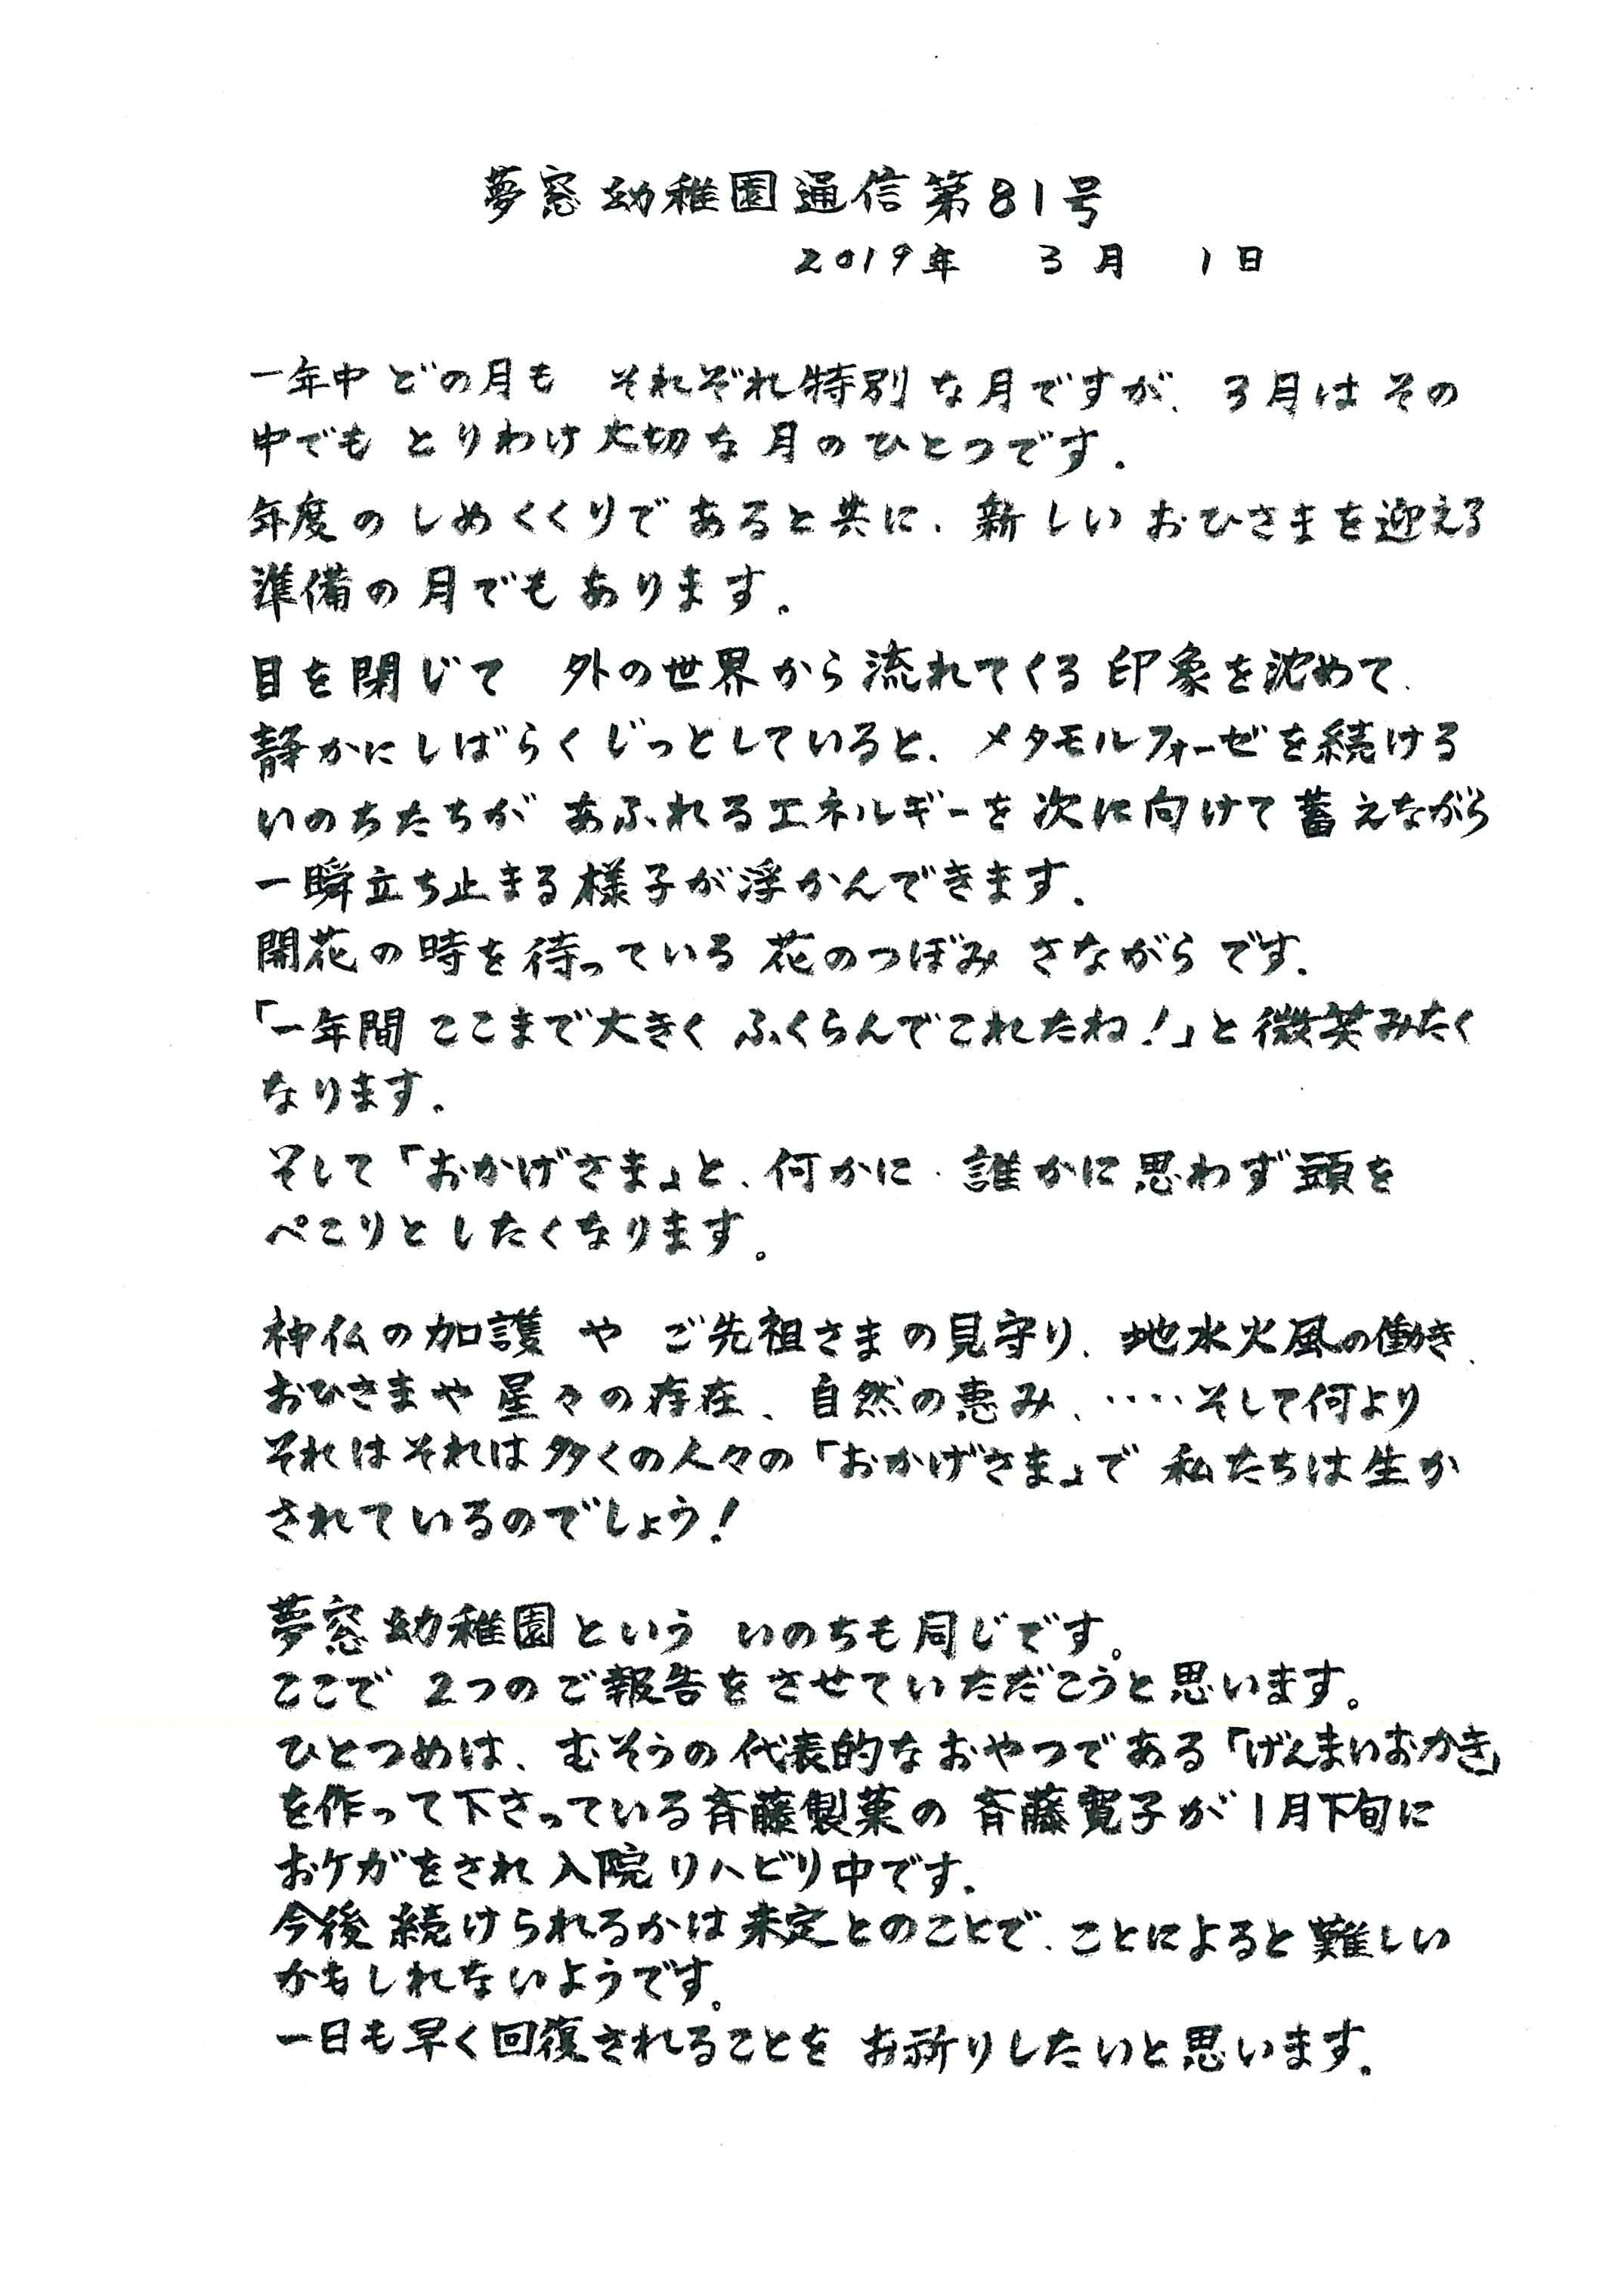 夢窓幼稚園通信第81号
2019年 3月 1日
一年中どの月も それぞれ特別な月ですが、3月はその
中でも とりわけ大切な月のひとつです。
年度のしめくくりであると共に、新しいおひさまを迎える
準備の月でもあります。
目を閉じて 外の世界から流れてくる印象を沈めて、
静かにしばらくじっとしていると、メタモルフォーゼを続ける
いのちたちが あふれるエネルギーを次に向けて蓄えながら
一瞬立ち止まる様子が浮かんできます。
開花の時を待っている花のつぼみ さながらです。
「一年間 ここまで大きく ふくらんでこれたね！」と微笑みたく
なります。
そして「おかげさま」と、何かに・誰かに思わず頭を
ぺこりとしたくなります。
神仏の加護 や ご先祖さまの見守り、地水火風の働き、
おひさまや星々の存在、自然の恵み、‥‥そして何より
それはそれは多くの人々の「おかげさま」で 私たちは生か
されているのでしょう！
夢窓幼稚園という いのちも同じです。
ここで 2つのご報告をさせていただこうと思います。
ひとつめは、むそうの代表的なおやつである「げんまいおかき」
を作って下さっている斉藤製菓の 斉藤寛子が1月下旬に
おケガをされ入院リハビリ中です。
今後 続けられるかは未定とのことで、ことによると難しい
かもしれないようです。
一日も早く回復されることを お祈りしたいと思います。